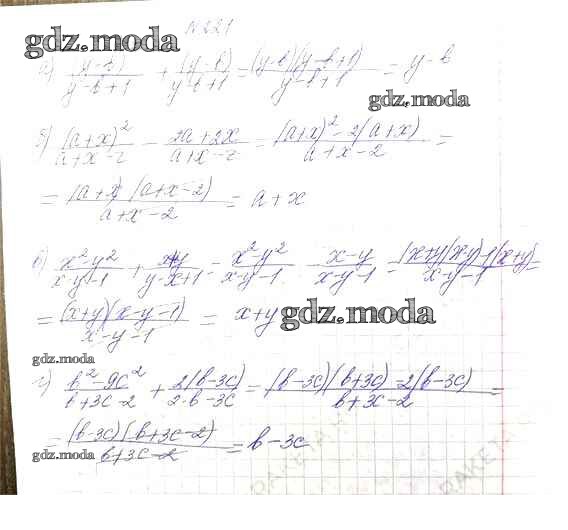 №221
gdz.moda
а) (y-b)²/(y-b+1) + (y-b)/(y-b+1) = (y-b)(y-b+1)/(y-b+1) = y-b
gdz.moda
б) (a+x)²/(a+x-2) - (2a+2x)/(a+x-2) = ((a+x)²-2(a+x))/(a+x-2) =
= (a+x)(a+x-2)/(a+x-2) = a+x
в) (x²-y²)/(x-y-1) + (x+y)/(y-x+1) = (x²-y²)/(x-y-1) - (x-y)/(x-y-1) = ((x+y)(x-y)-1(x+y))/(x-y-1) =
= (x+y)(x-y-1)/(x-y-1) = x+y
gdz.moda
gdz.moda
г) (b²-9c²)/(b+3c-2) + 2(b-3c)/(2-b-3c) = ((b-3c)(b+3c)-2(b-3c))/(b+3c-2) =
= (b-3c)(b+3c-2)/(b+3c-2) = b-3c
gdz.moda
РАКЕТА
РАКЕТА